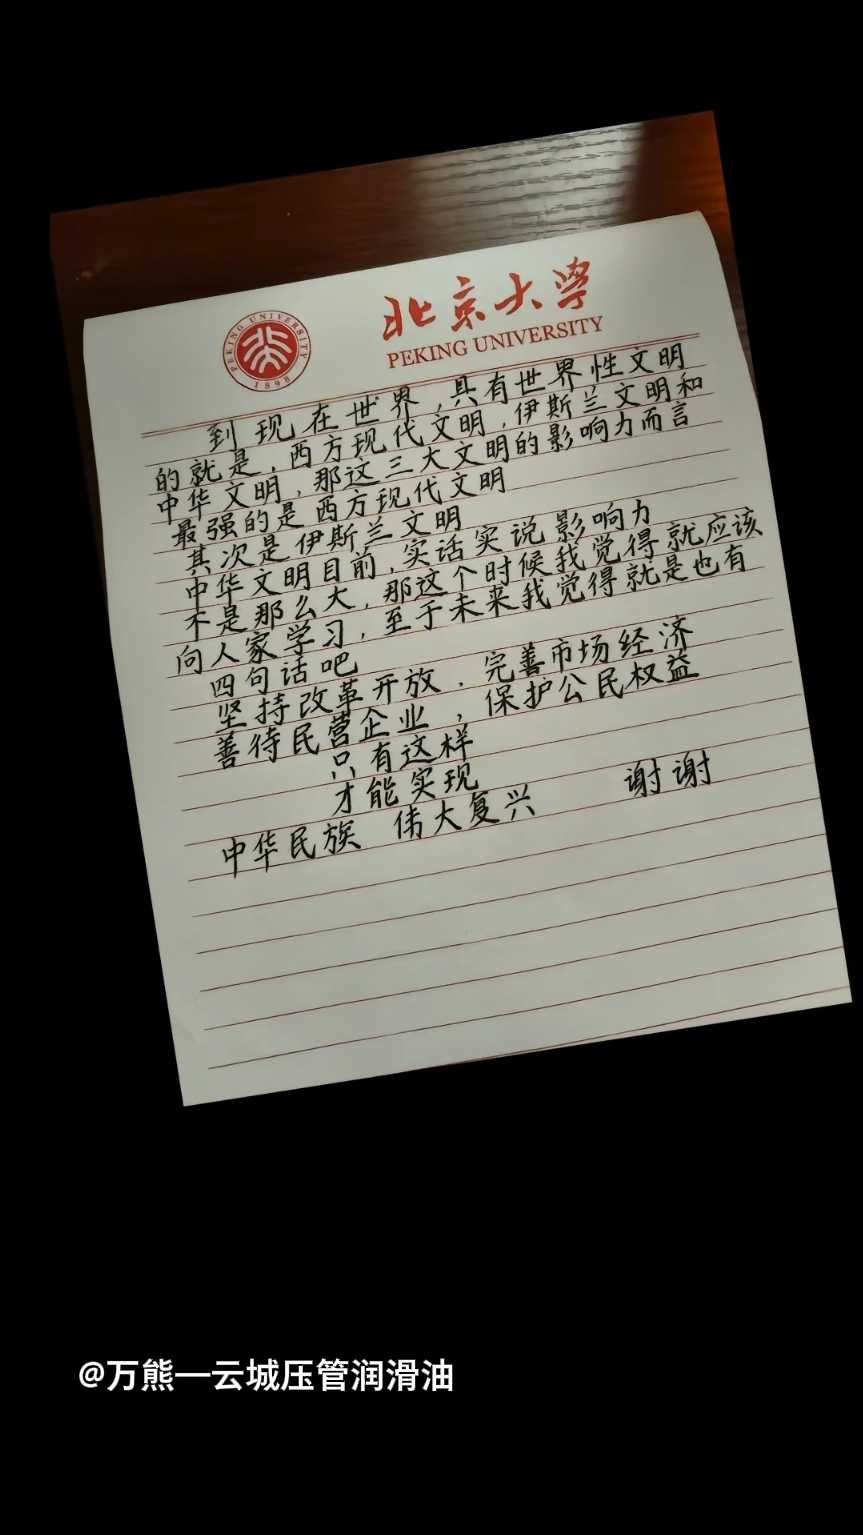 北京大学
PEKING UNIVERSITY
PEKING UNIVERSITY
1898
到现在世界，具有世界性文明
的就是，西方现代文明，伊斯兰文明和
中华文明，那这三大文明的影响力而言
最强的是西方现代文明
其次是伊斯兰文明
中华文明目前，实话实说影响力
不是那么大，那这个时候我觉得就应该
向人家学习，至于未来我觉得就是也有
四句话吧
坚持改革开放．完善市场经济
善待民营企业，保护公民权益
只有这样
才能实现
中华民族 伟大复兴 谢谢
@万熊一云城压管润滑油